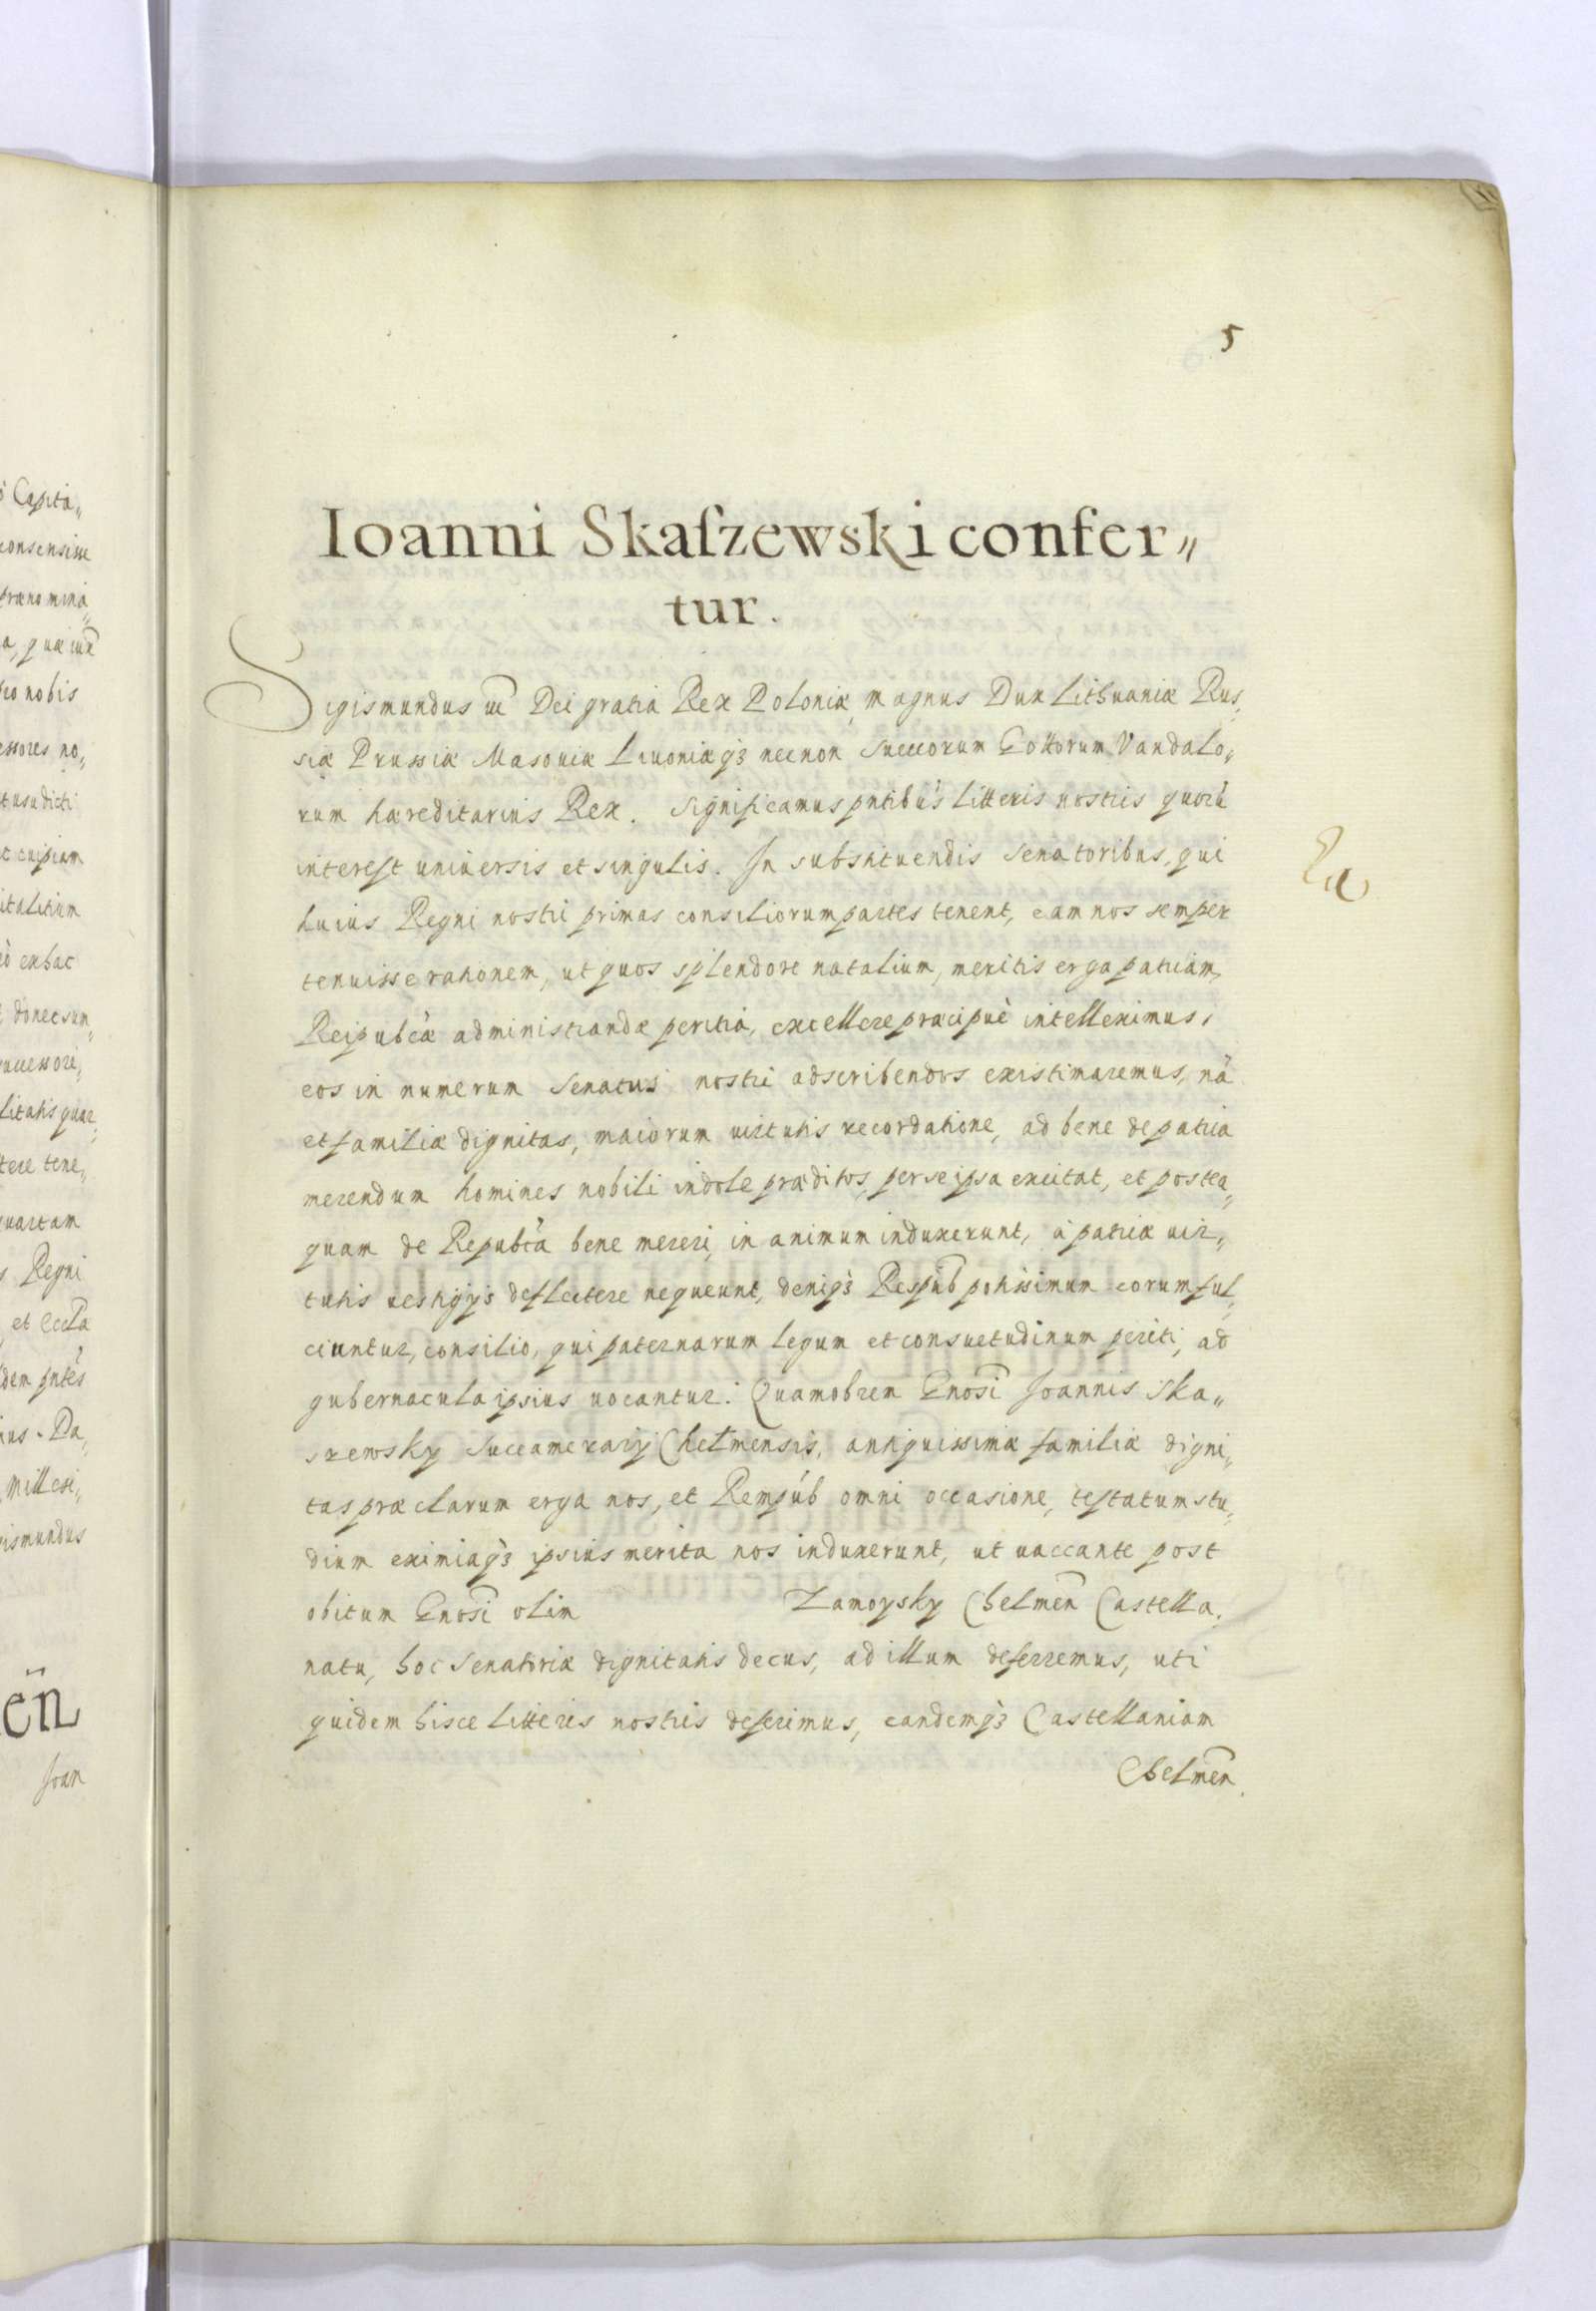 5
Ioanni Skaſzewski confer„
tur.
Sigismundus III Dei gratia Rex Poloniæ, magnus Dux Lithuaniæ Rus„
siæ Prussiæ Masoviæ Livoniæq3 necnon Suecorum Gottorum Vandalo„
rum hæreditarius Rex. Significamus pñtibús litteris nostris quorũ
interest universis et singulis. In substituendis Senatoribus, qui
huius Regni nostri primas consiliorum partes tenent, eam nos semper
tenuisse rationem, ut quos splendore natalium, meritis erga patriam,
Reipubcæ administrandæ peritiâ, excellere præcipuè intelleximus,
eos in numerum Senatus nostri adscribendos existimaremus, nã
et familiæ dignitas, maiorum virtutis recordatione, ad bene de patria
merendum homines nobili indole præditos, per se ipsa excitat, et postea„
quam de Repubca bene mereri, in animum induxerunt, à patriæ vir„
tutis vestigijs deflectere nequeunt, deniq3 Respúb potissimum eorum ful„
ciuntur, consilio, qui paternarum legum et consuetudinum periti, ad
gubernacula ipsius vocantur. Quamobrem Gnosi Joannis Ska„
szewsky Succamerarij Chelmensis, antiquissimæ familiæ digni„
tas præclarum erga nos, et Rempúb omni occasione, testatum stu„
dium eximiaq3 ipsius merita nos induxerunt, ut vaccante post
obitum Gnosi olim Zamoysky Chelmeñ Castella„
natu, hoc Senatoriæ dignitatis decus, ad illum deferremus, uti
quidem hisce litteris nostris deferimus, eandemq3 Castellaniam
Chelmeñ
ò Capita„
consensisse
prænomina„
nobis
no„
usu dicti
cuipiam
italitium
donec sum„
successori„
litatis quar„
tere tene„
quartam
Regni
et
dem pñtes
Millesi„
gismundus
Joan